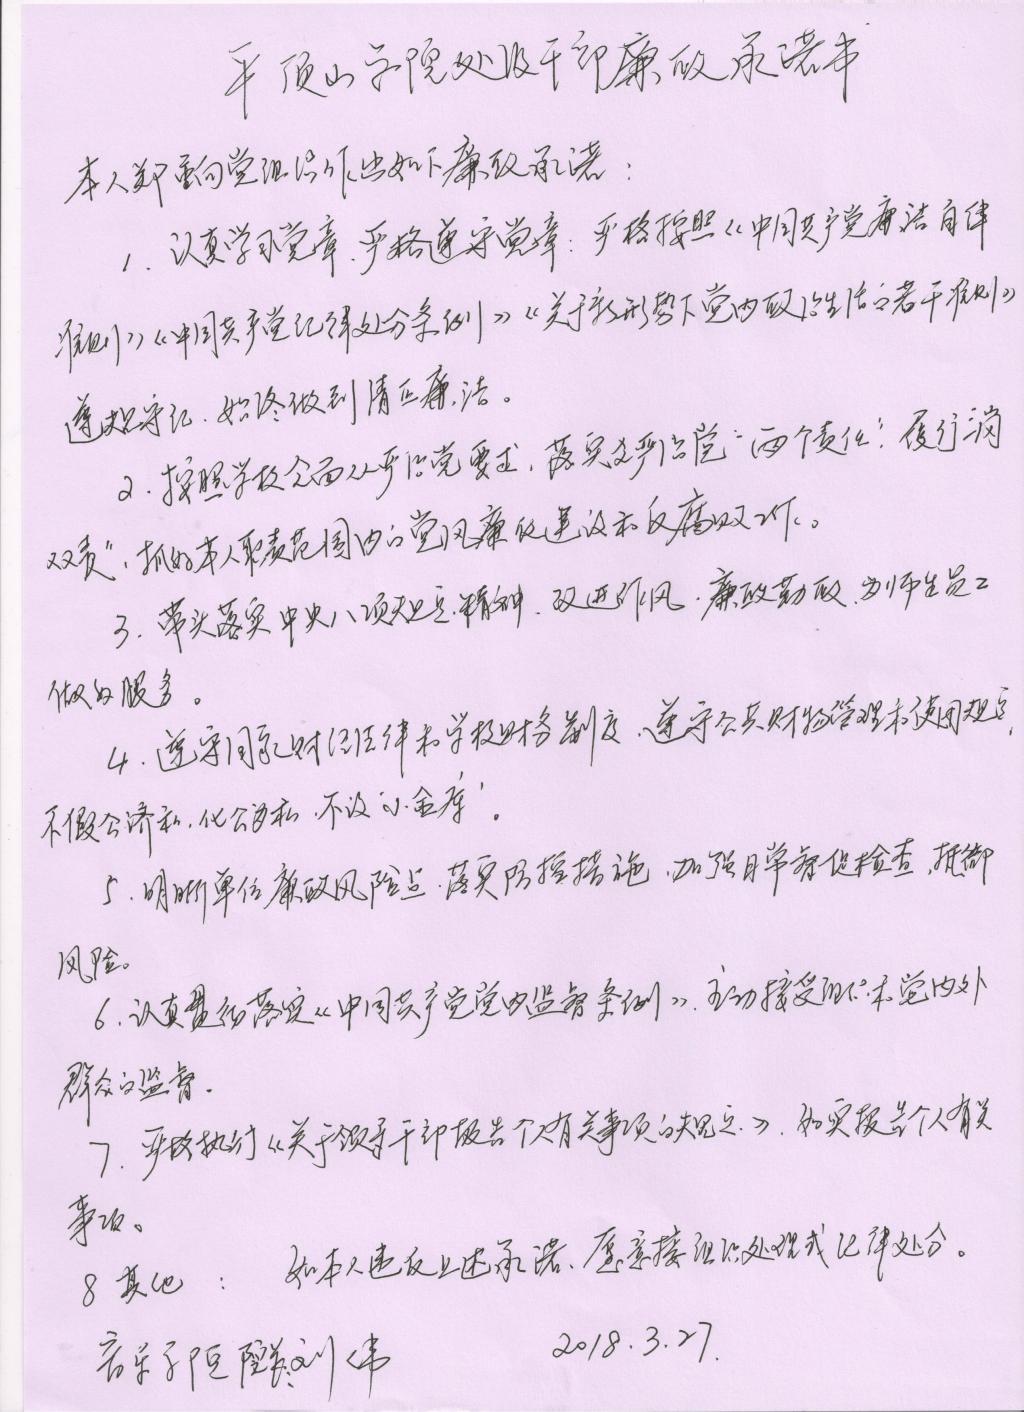 平顶山学院处级干部廉政承诺书
本人郑重向党组织作出如下廉政承诺：
1、认真学习党章、严格遵守党章；严格按照《中国共产党廉洁自律
准则》《中国共产党纪律处分条例》《关于新形势下党内政治生活的若干准则》
遵规守纪、始终做到清正廉洁。
2、按照学校全面从严治党要求，落实从严治党“两个责任”，履行一岗
双责”，抓好本人职责范围内的党风廉政建设和反腐败工作。
3、带头落实中央八项规定精神、改进作风、廉政勤政、为师生员工
做好服务。
4、遵守国家财经法律和学校财务制度、遵守公共财物管理和使用规定，
不假公济私、化公为私、不设“小金库”。
5、明晰单位廉政风险点、落实防控措施、加强日常督促检查、抵御
风险。
6、认真贯彻落实《中国共产党党内监督条例》、主动接受组织和党内外
群众的监督。
7、严格执行《关于领导干部报告个人有关事项的规定》、如实报告个人有关
事项。
8 其他： 如本人违反上述承诺、愿意接组织处理或纪律处分。
音乐学院 院长 刘伟 2018.3.27.